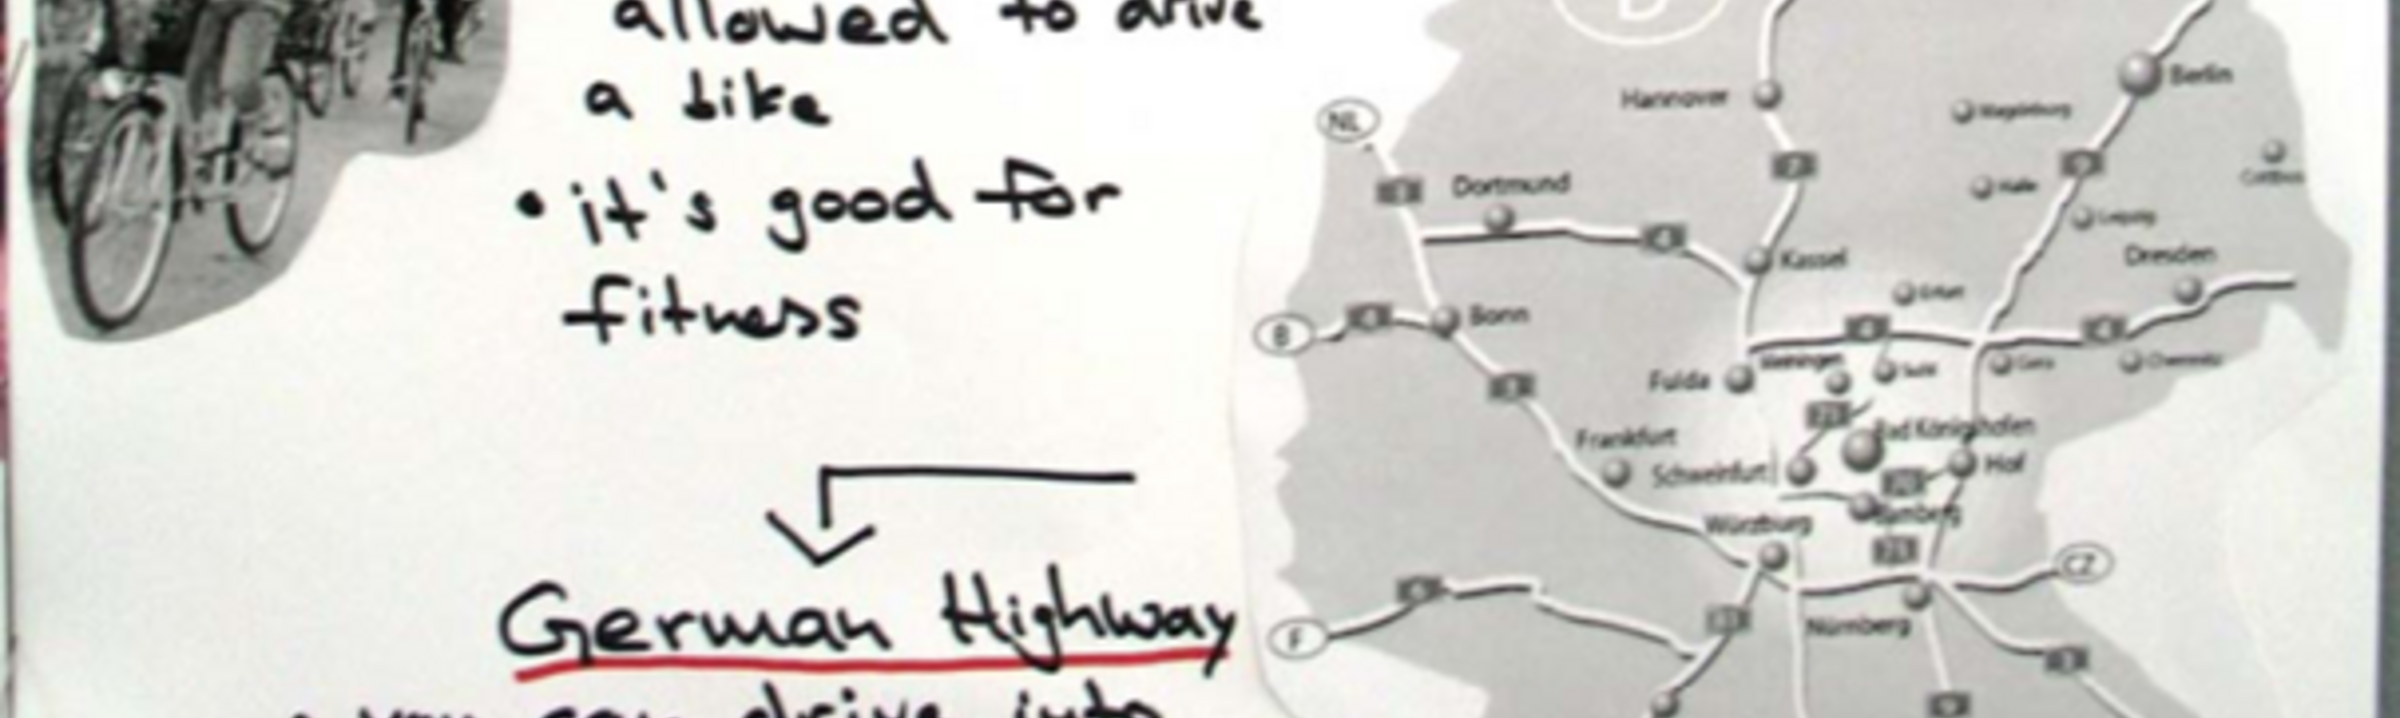 allowed to drive
a bike
• it's good for
fitness
German Highway
• you can drive into
D
Hannover
Berlin
Magdeburg
NL
Dortmund
Halle
Leipzig
Cottbus
Dresden
Kassel
Erfurt
B
Bonn
Fulda
Meiningen
Suhl
Gera
Chemnitz
Frankfurt
Bad Königshofen
Schweinfurt
Hof
Würzburg
Bamberg
CZ
F
Nürnberg